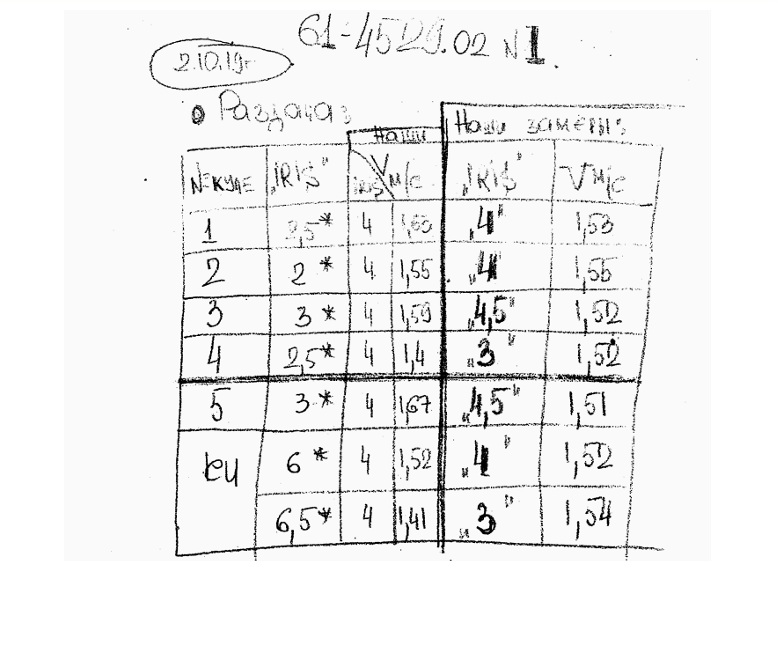 61-4529.02 N1.
2.10.19г
Раздача:
Наши
Наши замеры:
№ купе „IRIS“ IRIS V м/с „IRIS“ V м/с
1 2,5* 4 1,63 „4“ 1,53
2 2* 4 1,55 „4“ 1,55
3 3* 4 1,59 „4,5“ 1,52
4 2,5* 4 1,4 „3“ 1,52
5 3* 4 1,67 „4,5“ 1,51
6* 4 1,52 „4“ 1,52
6,5* 4 1,41 „3“ 1,54